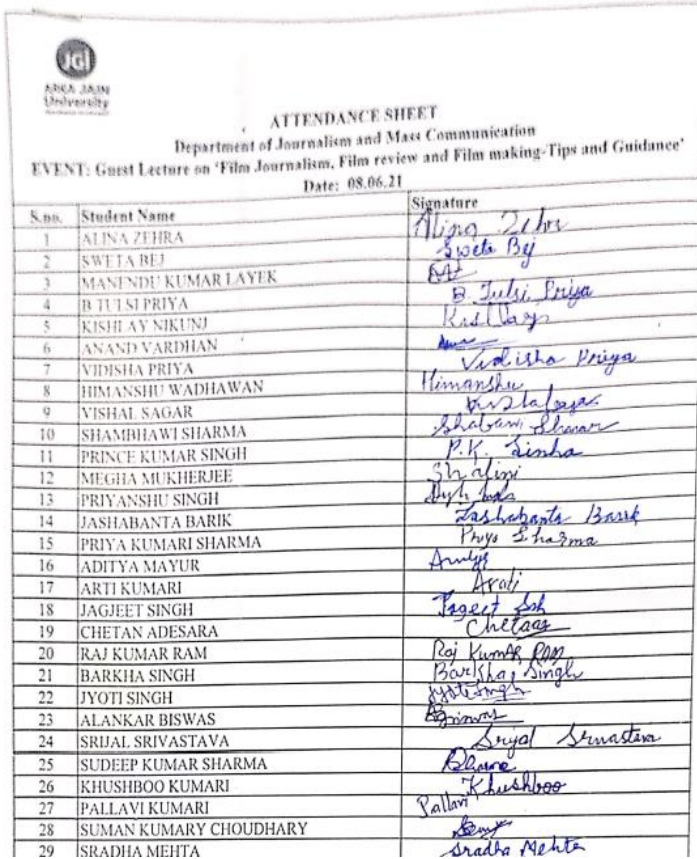 JGI
ARKA JAIN
University
ATTENDANCE SHEET
Department of Journalism and Mass Communication
EVENT: Guest Lecture on 'Film Journalism, Film review and Film making-Tips and Guidance'
Date: 08.06.21
S.no. Student Name Signature
1 ALINA ZEHRA Alina Zehra
2 SWETA BEJ Sweta Bej
3 MANENDU KUMAR LAYEK
4 B TULSI PRIYA B. Tulsi Priya
5 KISHLAY NIKUNJ Kishlay
6 ANAND VARDHAN
7 VIDISHA PRIYA Vidisha Priya
8 HIMANSHU WADHAWAN Himanshu
9 VISHAL SAGAR
10 SHAMBHAWI SHARMA
11 PRINCE KUMAR SINGH P.K. Sinha
12 MEGHA MUKHERJEE Shalini
13 PRIYANSHU SINGH
14 JASHABANTA BARIK Jashabanta Barik
15 PRIYA KUMARI SHARMA Priya Sharma
16 ADITYA MAYUR
17 ARTI KUMARI Arati
18 JAGJEET SINGH
19 CHETAN ADESARA Chetan
20 RAJ KUMAR RAM Raj Kumar Ram
21 BARKHA SINGH Barkha Singh
22 JYOTI SINGH Jyoti Singh
23 ALANKAR BISWAS Biswas
24 SRIJAL SRIVASTAVA Srijal Srivastava
25 SUDEEP KUMAR SHARMA
26 KHUSHBOO KUMARI Khushboo
27 PALLAVI KUMARI Pallavi
28 SUMAN KUMARY CHOUDHARY
29 SRADHA MEHTA Sradha Mehta